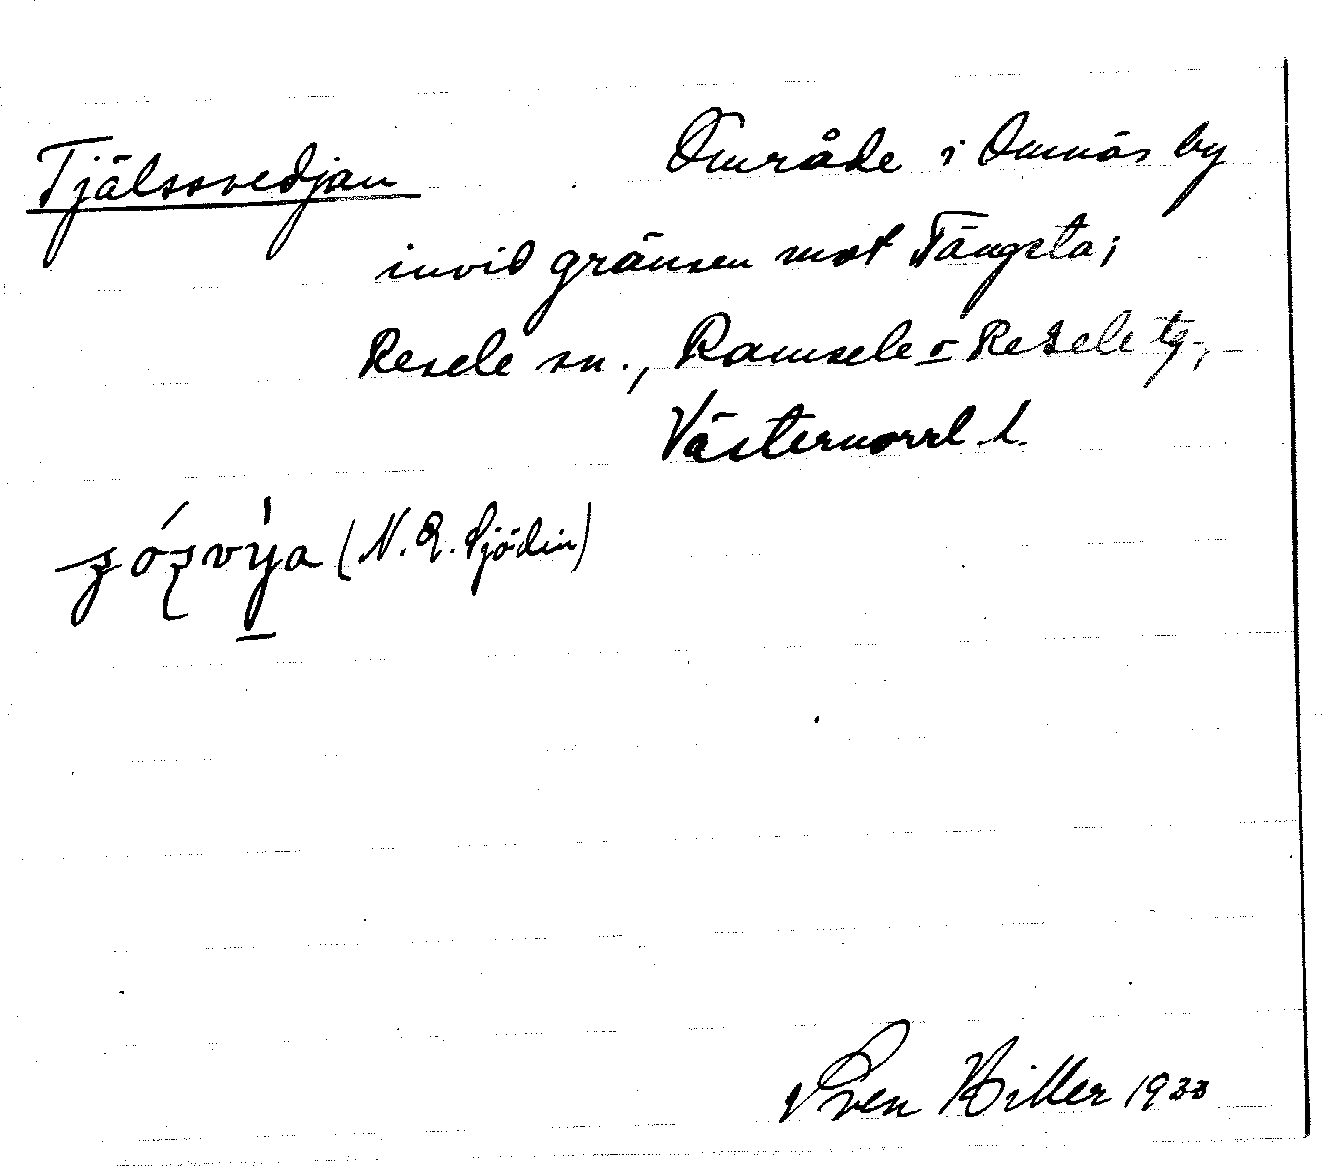 Tjälssvedjan Område i Omnäs by
invid gränsen mot Tängsta;
Resele sn., Ramsele o Resele tg.,
Västernorrl. l.
(N. E. Sjödin)
Sven Hiller 1933